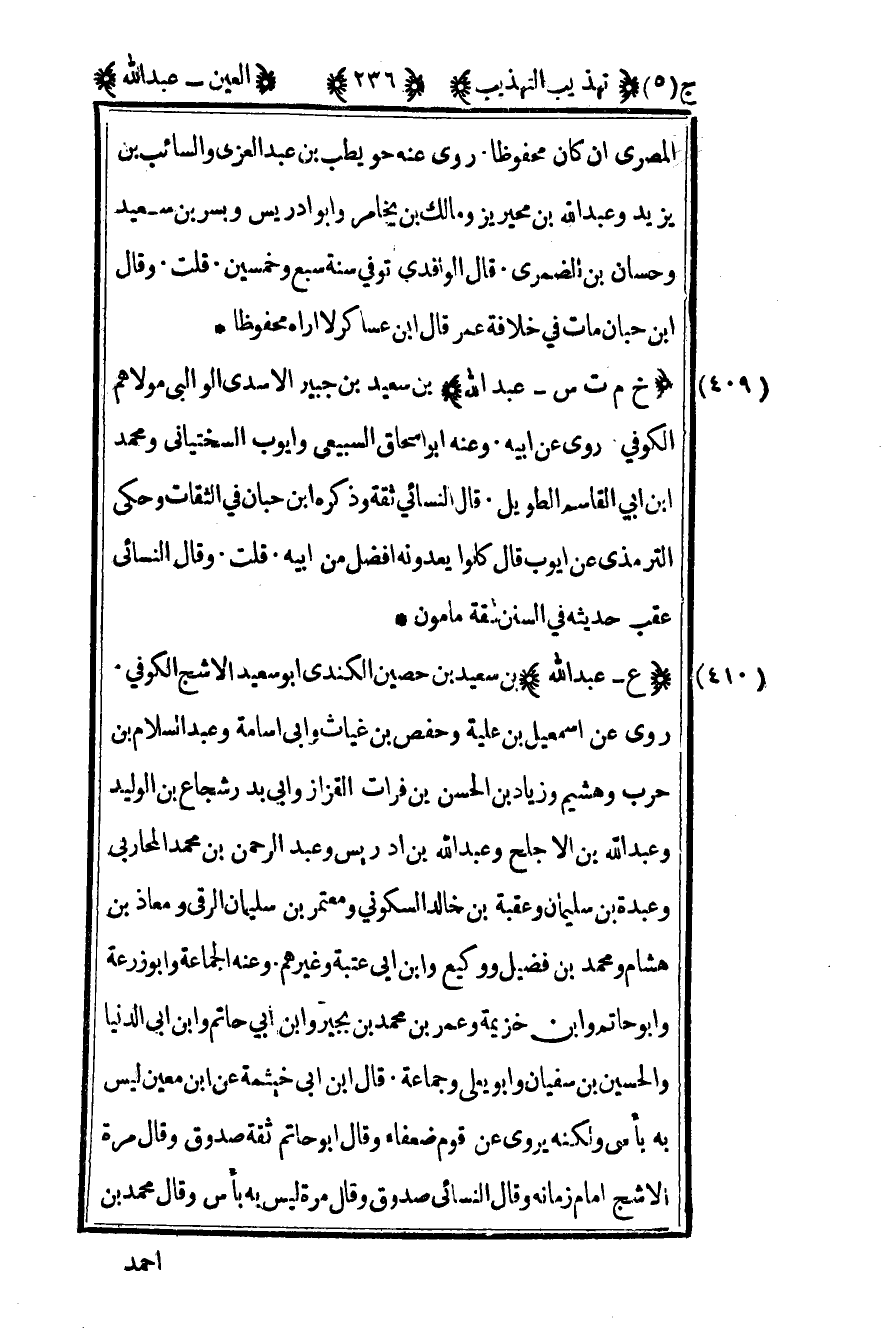 ج(٥) ﴿ تهذيب التهذيب ﴾ ﴿ ٢٣٦ ﴾ ﴿ العين ــ عبدالله ﴾
المصرى ان كان محفوظا · روى عنه حويطب بن عبدالعزى والسائب بن
يزيد وعبدالله بن محيريز ومالك بن يخامر وابوادريس وبسر بن سعيد
وحسان بن الضمرى · قال الواقدي توفي سنة سبع وخمسين · قلت · وقال
ابن حبان مات في خلافة عمر قال ابن عساكر لا اراه محفوظا *
(٤٠٩) ﴿ خ م ت س ــ عبدالله ﴾ بن سعيد بن جبير الاسدى الوالبي مولاهم
الكوفي روى عن ابيه · وعنه ابواسحاق السبيعي وايوب السختيانى ومحمد
ابن ابي القاسم الطويل · قال النسائي ثقة وذكره ابن حبان في الثقات وحكى
الترمذى عن ايوب قال كانوا يعدونه افضل من ابيه · قلت · وقال النسائى
عقب حديثه في السنن ثقة مامون *
(٤١٠) ﴿ ع ــ عبدالله ﴾ بن سعيد بن حصين الكندى ابوسعيد الاشج الكوفي ·
روى عن اسمعيل بن علية وحفص بن غياث وابى اسامة وعبدالسلام بن
حرب وهشيم وزياد بن الحسن بن فرات القزاز وابى بدر شجاع بن الوليد
وعبدالله بن الاجلح وعبدالله بن ادريس وعبد الرحمن بن محمد المحاربى
وعبدة بن سليمان وعقبة بن خالد السكوني ومعتمر بن سليمان الرقى ومعاذ بن
هشام ومحمد بن فضيل ووكيع وابن ابى عتبة وغيرهم · وعنه الجماعة وابوزرعة
وابوحاتم وابن خزيمة وعمر بن محمد بن بجير وابن ابي حاتم وابن ابى الدنيا
والحسين بن سفيان وابويعلى وجماعة · قال ابن ابى خيثمة عن ابن معين ليس
به بأس ولكنه يروى عن قوم ضعفاء وقال ابوحاتم ثقة صدوق وقال مرة
الاشج امام زمانه وقال النسائى صدوق وقال مرة ليس به بأس وقال محمد بن
احمد